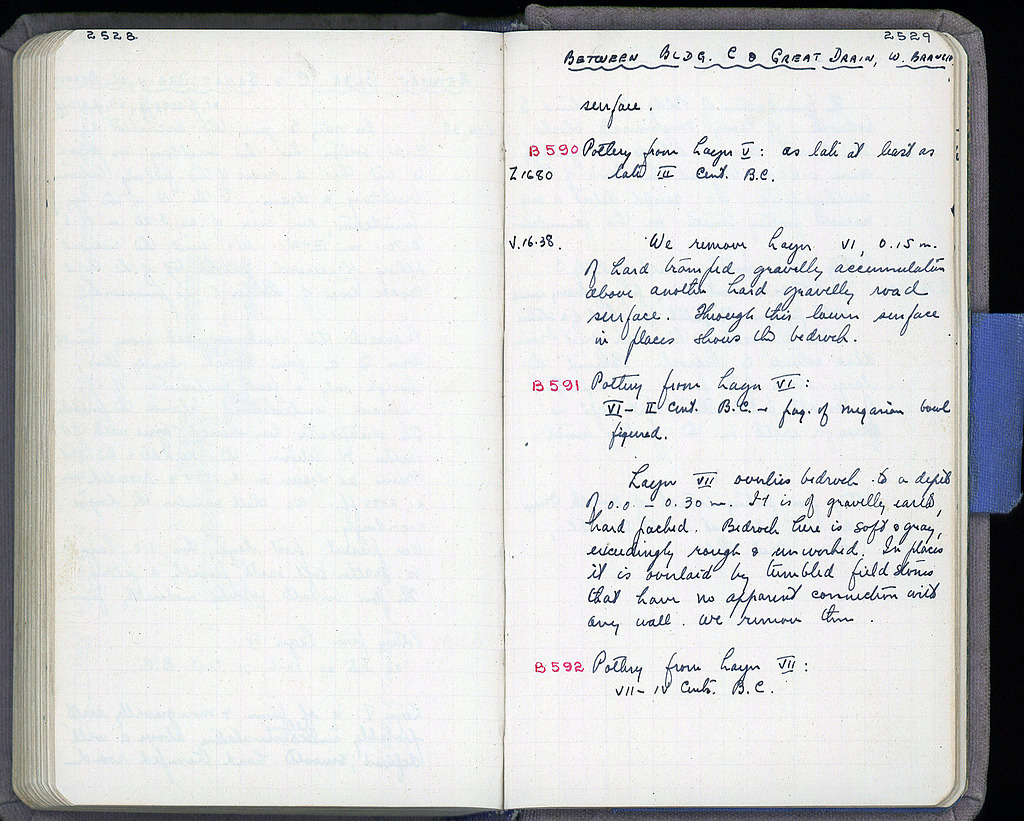 2528
2529
BETWEEN BLDG. C & GREAT DRAIN, W. BRANCH
surface.
B 590 Pottery from Layer V: as late at least as
Z 1680 late III Cent. B.C.
V.16.38. We remove Layer VI, 0.15 m.
of hard tramped gravelly accumulation
above another hard gravelly road
surface. Through this lower surface
in places shows the bedrock.
B 591 Pottery from Layer VI:
VI - II Cent. B.C. - frag. of megarian bowl
figured.
Layer VII overlies bedrock to a depth
of 0.0. - 0.30 m. It is of gravelly earth,
hard packed. Bedrock here is soft & gray,
exceedingly rough & unworked. In places
it is overlaid by tumbled field stones
that have no apparent connection with
any wall. We remove them.
B 592 Pottery from Layer VII:
VII - IV Cents. B.C.